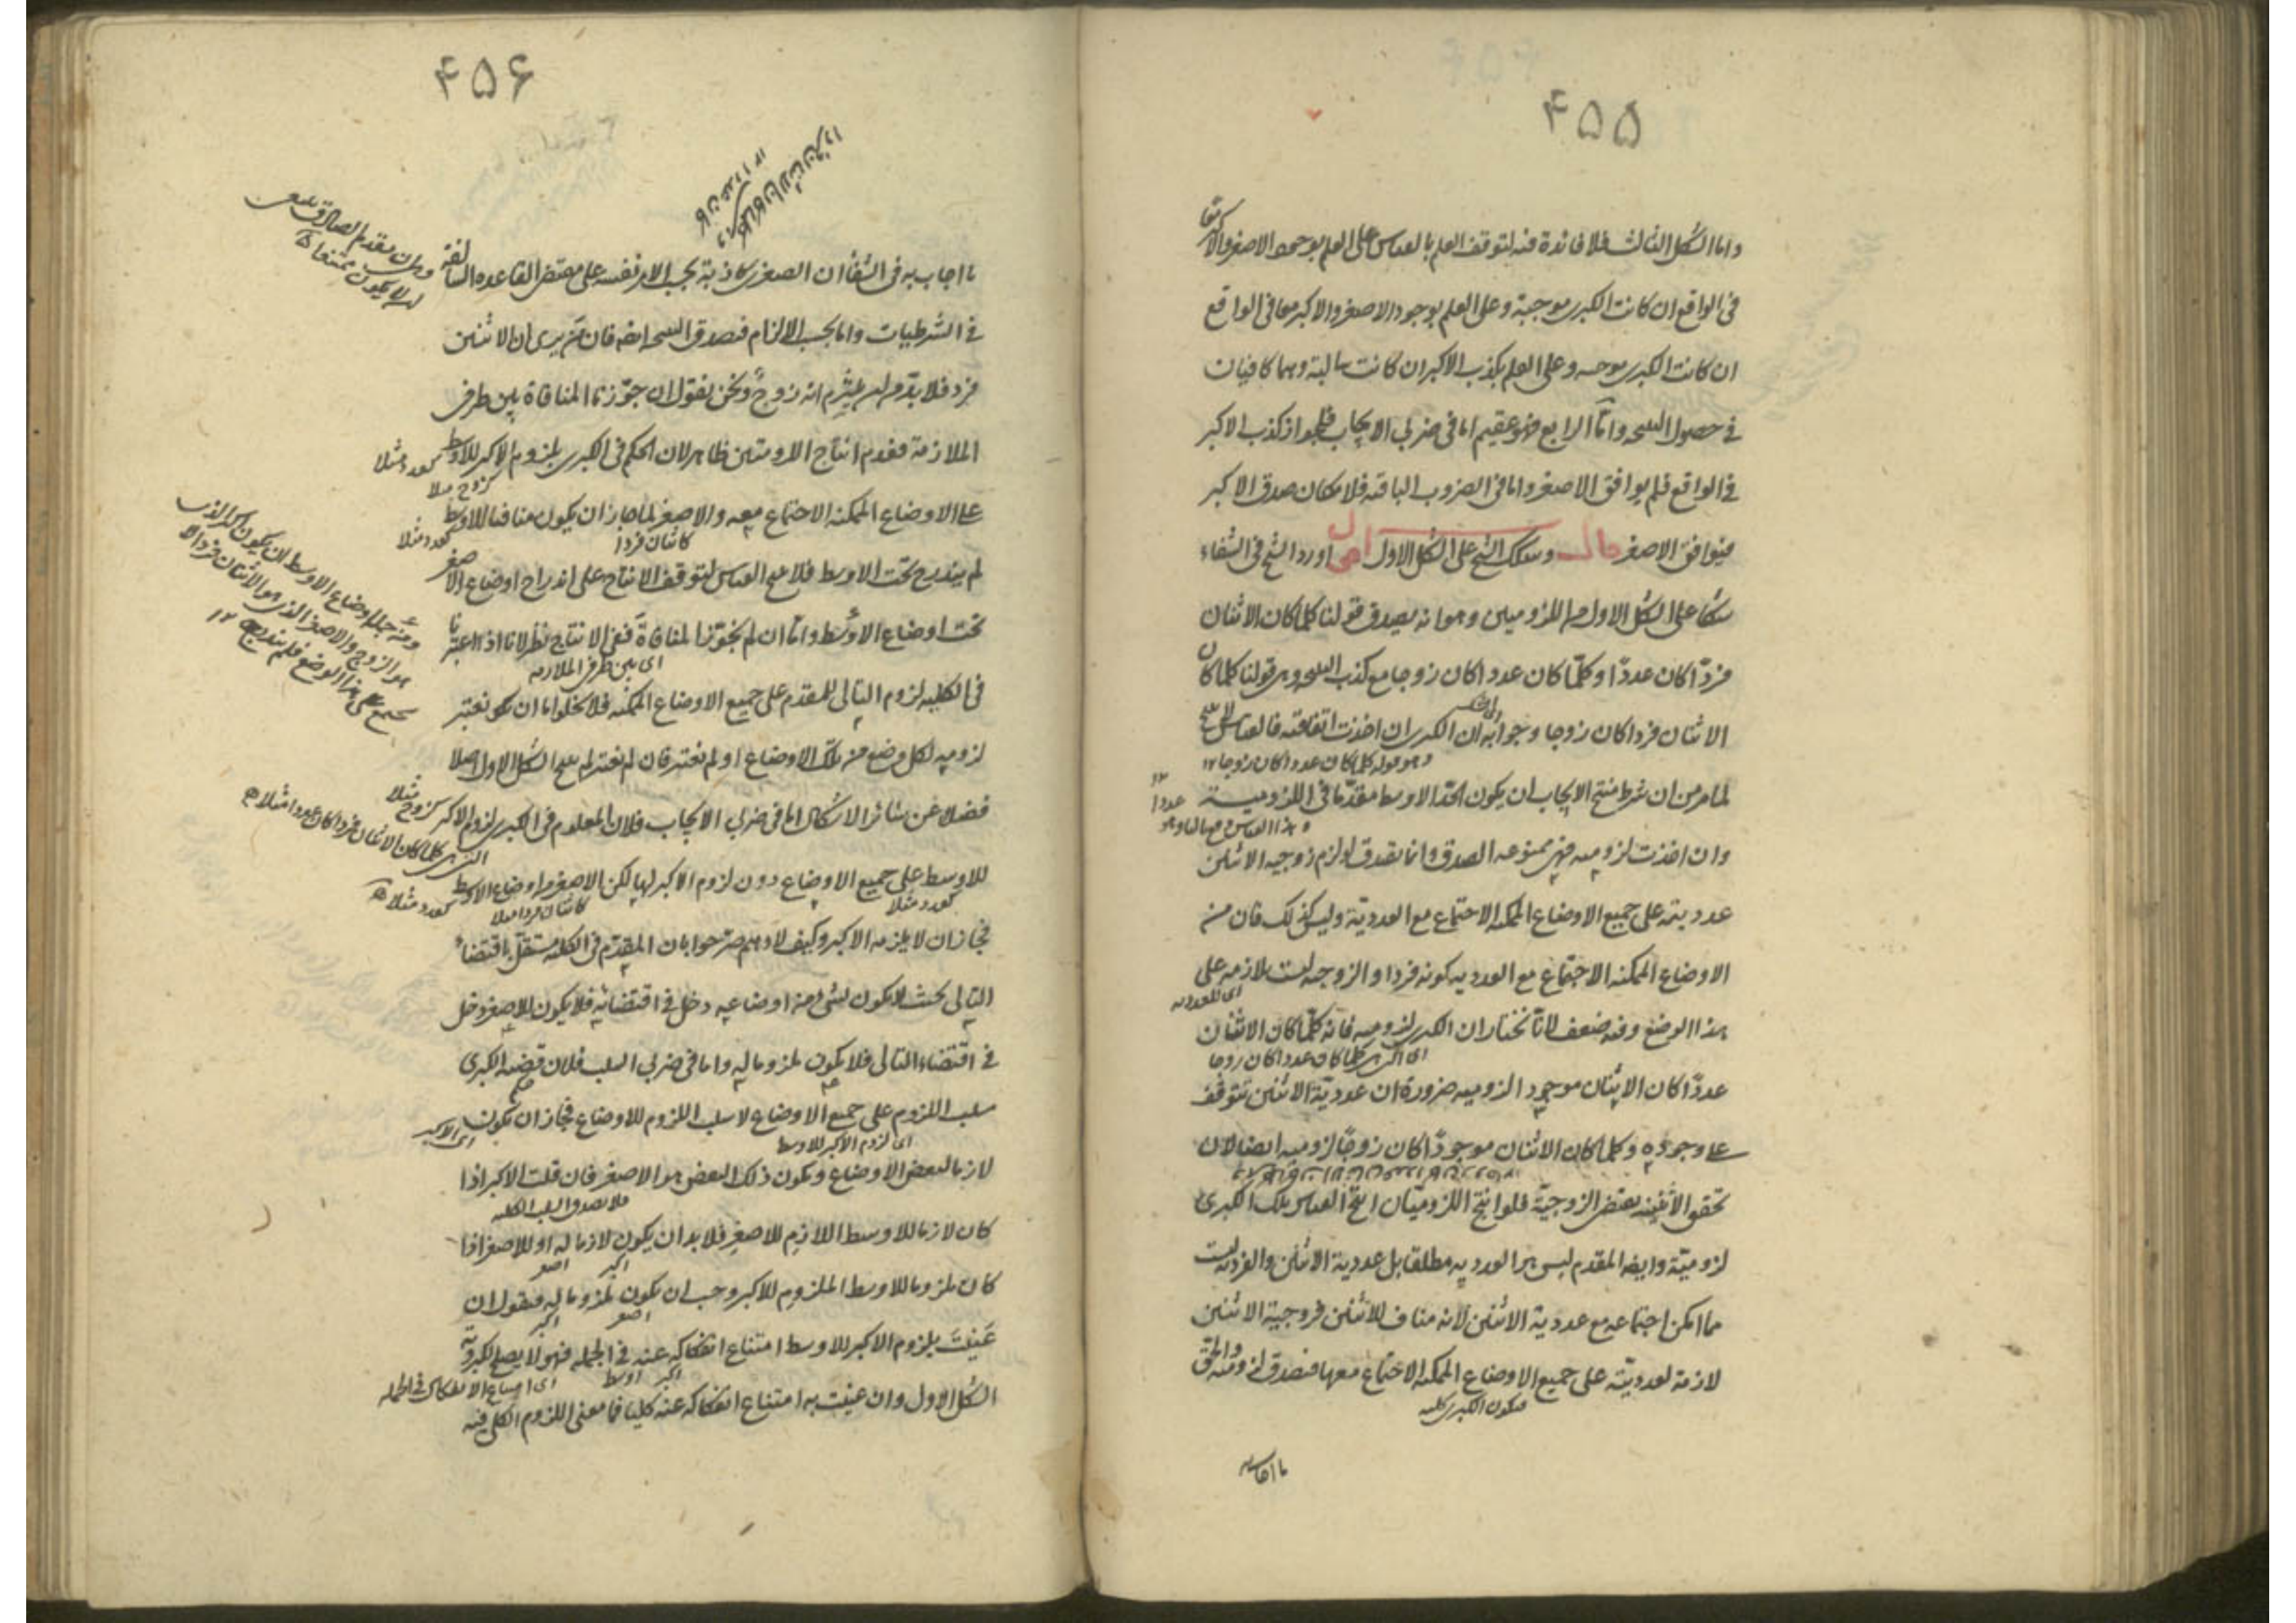 ۴۵۵
واما الشكل الثالث فلا فائدة فيه لتوقف العلم بالقياس على العلم بوجود الاصغر والاكبر
فى الواقع ان كانت الكبرى موجبة وعلى العلم بوجود الاصغر والاكبر معا فى الواقع
ان كانت الكبرى موجبه وعلى العلم بكذب الاكبر ان كانت سالبة وهما كافيان
فى حصول النتيجه واما الرابع فهو عقيم اما فى ضربى الايجاب فلجواز كذب الاكبر
فى الواقع فلم يوافق الاصغر واما فى الضروب الباقيه فلامكان صدق الاكبر
فيوافق الاصغر قال وشكك الشيخ على الشكل الاول اقول اورد الشيخ فى الشفاء
شكا على الشكل الاول من اللزوميين وهو انه يصدق قولنا كلما كان الاثنان
فردًا كان عددًا وكلّما كان عددا كان زوجا مع كذب النتيجه وهى قولنا كلما كان
الاثنان فردا كان زوجا وجوابه ان الكبرى ان اخذت اتفاقيه فالقياس لا ينتج
وهو قوله كلما كان عددا كان زوجا ١٢
لما مر من ان شرط منتج الايجاب ان يكون الحدّ الاوسط مقدّما فى اللزومية
وان اخذت لزوميه فهى ممنوعه الصدق وانما يصدق لو لزم زوجيه الاثنين
عدديته على جميع الاوضاع الممكنه الاجتماع مع العدديّة وليس كذلك فان من
الاوضاع الممكنه الاجتماع مع العدديه كونه فردا والزوجيه ليست بلازمه على
اى للعدديه
هذا الوضع وفيه ضعف لانّا نختار ان الكبرى لزوميه فانه كلّما كان الاثنان
اى الكبرى كلما كان عددا كان زوجا
عددًا كان الاثنان موجودا لزوميه ضرورة ان عدديّة الاثنين تتوقف
على وجوده وكلما كان الاثنان موجودًا كان زوجًا لزوميه ايضا لان
تحقق الاثنينيه يقتضى الزوجيّة فلو انتج اللزوميتان انتج القياس تلك الكبرى
لزوميّة وايضا المقدم ليس هو العدديه مطلقا بل عددية الاثنين والفرديه ليست
مما امكن اجتماعه مع عددية الاثنين لانه مناف للاثنين فزوجية الاثنين
لازمة لعدديّته على جميع الاوضاع الممكنه الاجتماع معها فتصدق لزوميه والحق
فيكون الكبرى كليه
ما اجاب به
۴۵۶
ما اجاب به فى الشفا ان الصغرى كاذبة بحسب الامر نفسه على مقتضى القاعده السالفة
فى الشرطيات واما بحسب الالزام فتصدق النتيجه ايضا فان من يرى ان الاثنين
فرد فلا بدّ من ان يلتزم انه زوجٌ ونحن نقول ان جوّزنا المنافاة بين طرفى
الملازمة فعدم انتاج اللزوميتين ظاهر لان الحكم فى الكبرى بلزوم الاكبر للاوسط
كعدد مثلا
على الاوضاع الممكنه الاجتماع معه والاصغر لما جاز ان يكون منافيا للاوسط
كاثنان فردا
كعدد مثلا
لم يندرج تحت الاوسط فلا ينتج القياس لتوقف الانتاج على اندراج اوضاع الاصغر
تحت اوضاع الاوسط واما ان لم نجوّز المنافاة ففى الانتاج نظر لانا اذا اعتبرنا
اى بين طرفى الملازمه
فى الكليه لزوم التالى للمقدم على جميع الاوضاع الممكنه فلا يخلو اما ان يكون نعتبر
لزوميه لكل وضع من تلك الاوضاع او لم نعتبر فان لم نعتبر لم ينتج الشكل الاول اصلا
فضلا عن سائر الاشكال اما فى ضربى الايجاب فلان المعلوم فى الكبرى لزوم الاكبر
كزوج مثلا
للاوسط على جميع الاوضاع دون لزوم الاكبر لها لكن الاصغر من اوضاع الاوسط
كعدد مثلا
كاثنان فردا مثلا
كعدد مثلا
فجاز ان لا يلزمه الاكبر وكيف لا وهم صرحوا بان المقدّم فى الكليه مستقلّ باقتضاء
التالى بحيث لا يكون لشى من اوضاعه دخل فى اقتضائه فلا يكون للاصغر دخل
فى اقتضاء التالى فلا يكون ملزوما له واما فى ضربى السلب فلان قضيه الكبرى
سلب اللزوم على جميع الاوضاع لا سلب اللزوم للاوضاع فجاز ان يكون
اى الاكبر
اى لزوم الاكبر للاوسط
لازما لبعض الاوضاع ويكون ذلك البعض هو الاصغر فان قلت الاكبر اذا
فلا يصدق السلب الكليه
كان لازما للاوسط اللازم للاصغر فلا بد ان يكون لازما له او الاصغر اذا
كان ملزوما للاوسط الملزوم للاكبر وجب ان يكون ملزوما له فنقول ان
عَنيتَ بلزوم الاكبر للاوسط امتناع انفكاكه عنه فى الجمله فهو لا يصلح لكبروية
اى امتناع الانفكاك فى الجمله
الشكل الاول وان عنيت به امتناع انفكاكه عنه كليا فما معنى اللزوم الكلى فيه